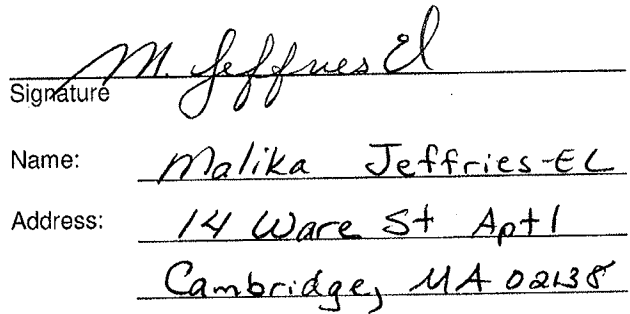 M. Jeffries El
Signature
Name: Malika Jeffries-EL
Address: 14 Ware St Apt 1
Cambridge, MA 02138